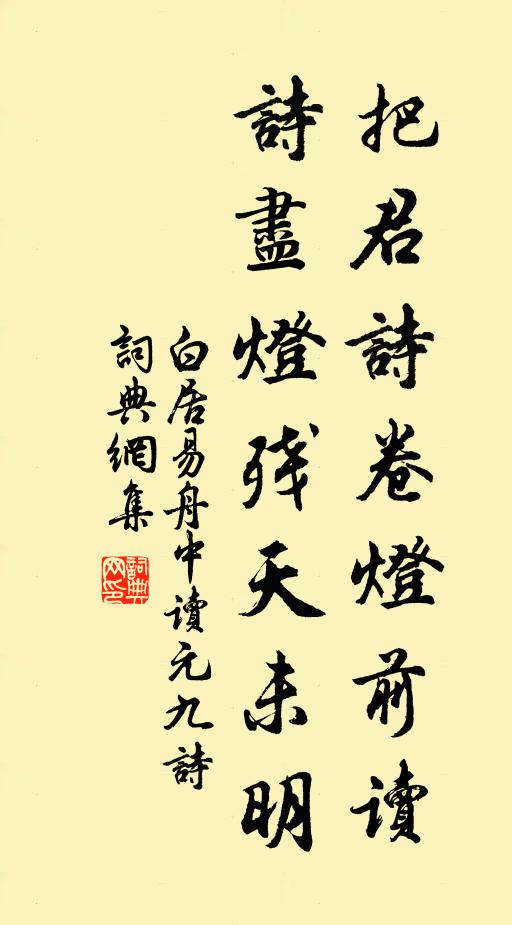 把君詩卷燈前读
詩盡燈残天未明
白居易舟中讀元九詩
詞典網集
詞典网印